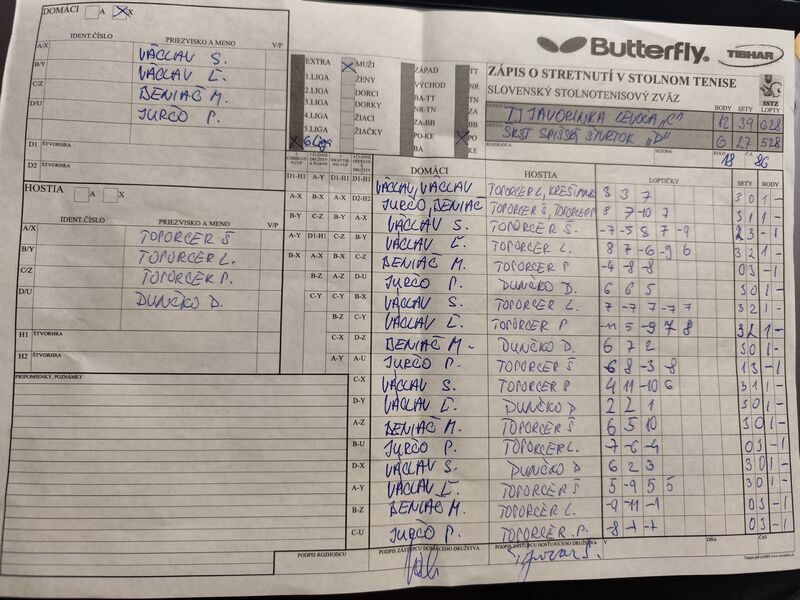 DOMÁCI A X
IDENT.ČÍSLO PRIEZVISKO A MENO V/P
A/X VÁCLAV S.
B/Y VÁCLAV Ľ.
C/Z BENIAČ M.
D/U JURČO P.
D1 ŠTVORHRA
D2
HOSTIA A X
IDENT.ČÍSLO PRIEZVISKO A MENO V/P
A/X TOPORCER Š
B/Y TOPORCER L.
C/Z TOPORCER P.
D/U DUNČKO D.
H1 ŠTVORHRA
H2 ŠTVORHRA
PRIPOMIENKY, POZNÁMKY
EXTRA MUŽI ZÁPAD TT
1.LIGA ŽENY VÝCHOD NR
2.LIGA DORCI BA-TT TN
3.LIGA DORKY NR-TN ZA
4.LIGA ŽIACI ZA-BB BB
5.LIGA ŽIAČKY PO-KE PO
6 liga BA KE
Butterfly TIBHAR
ZÁPIS O STRETNUTÍ V STOLNOM TENISE
SLOVENSKÝ STOLNOTENISOVÝ ZVÄZ SSTZ
BODY SETY LOPTY
TJ JAVORINKA LEVOČA "C" 12 39 628
SKST SPIŠSKÝ ŠTVRTOK "D" 6 27 528
ROZHODCA SEZÓNA KOLO Č.Z.
18 86
DOMÁCI HOSTIA LOPTIČKY SETY BODY
D1-H1 VÁCLAV, VÁCLAV TOPORCER L, 3 3 7 3 0 1 -
D2-H2 JURČO, BENIAČ TOPORCER Š, TOPORCER P 8 7 -10 7 3 1 1 -
A-X VÁCLAV S. TOPORCER Š. -7 -5 8 7 -9 2 3 - 1
B-Y VÁCLAV Ľ. TOPORCER L. 8 7 -6 -9 6 3 2 1 -
C-Z BENIAČ M. TOPORCER P -4 -8 -8 0 3 - 1
D-U JURČO P. DUNČKO D. 6 6 5 3 0 1 -
B-X VÁCLAV S. TOPORCER L. 7 -7 7 -7 7 3 2 1 -
C-Y VÁCLAV Ľ. TOPORCER P -11 5 -9 7 8 3 2 1 -
D-Z BENIAČ M. DUNČKO D. 6 7 2 3 0 1 -
A-U JURČO P. TOPORCER Š -6 8 -3 -8 1 3 - 1
C-X VÁCLAV S. TOPORCER P 4 11 -10 6 3 1 1 -
D-Y VÁCLAV Ľ. DUNČKO D 2 2 1 3 0 1 -
A-Z BENIAČ M. TOPORCER Š 6 5 10 3 0 1 -
B-U JURČO P. TOPORCER L. -7 -6 -4 0 3 - 1
D-X VÁCLAV S. DUNČKO D 6 2 3 3 0 1 -
A-Y VÁCLAV Ľ. TOPORCER Š 5 -9 5 5 3 1
B-Z BENIAČ M. TOPORCER L. -9 -11 -1 0 3 - 1
C-U JURČO P. TOPORCER P. 0 3 - 1
PODPIS ROZHODCU PODPIS ZÁSTUPCU DOMÁCEHO DRUŽSTVA PODPIS ZÁSTUPCU HOSŤUJÚCEHO DRUŽSTVA V DŇA ČAS